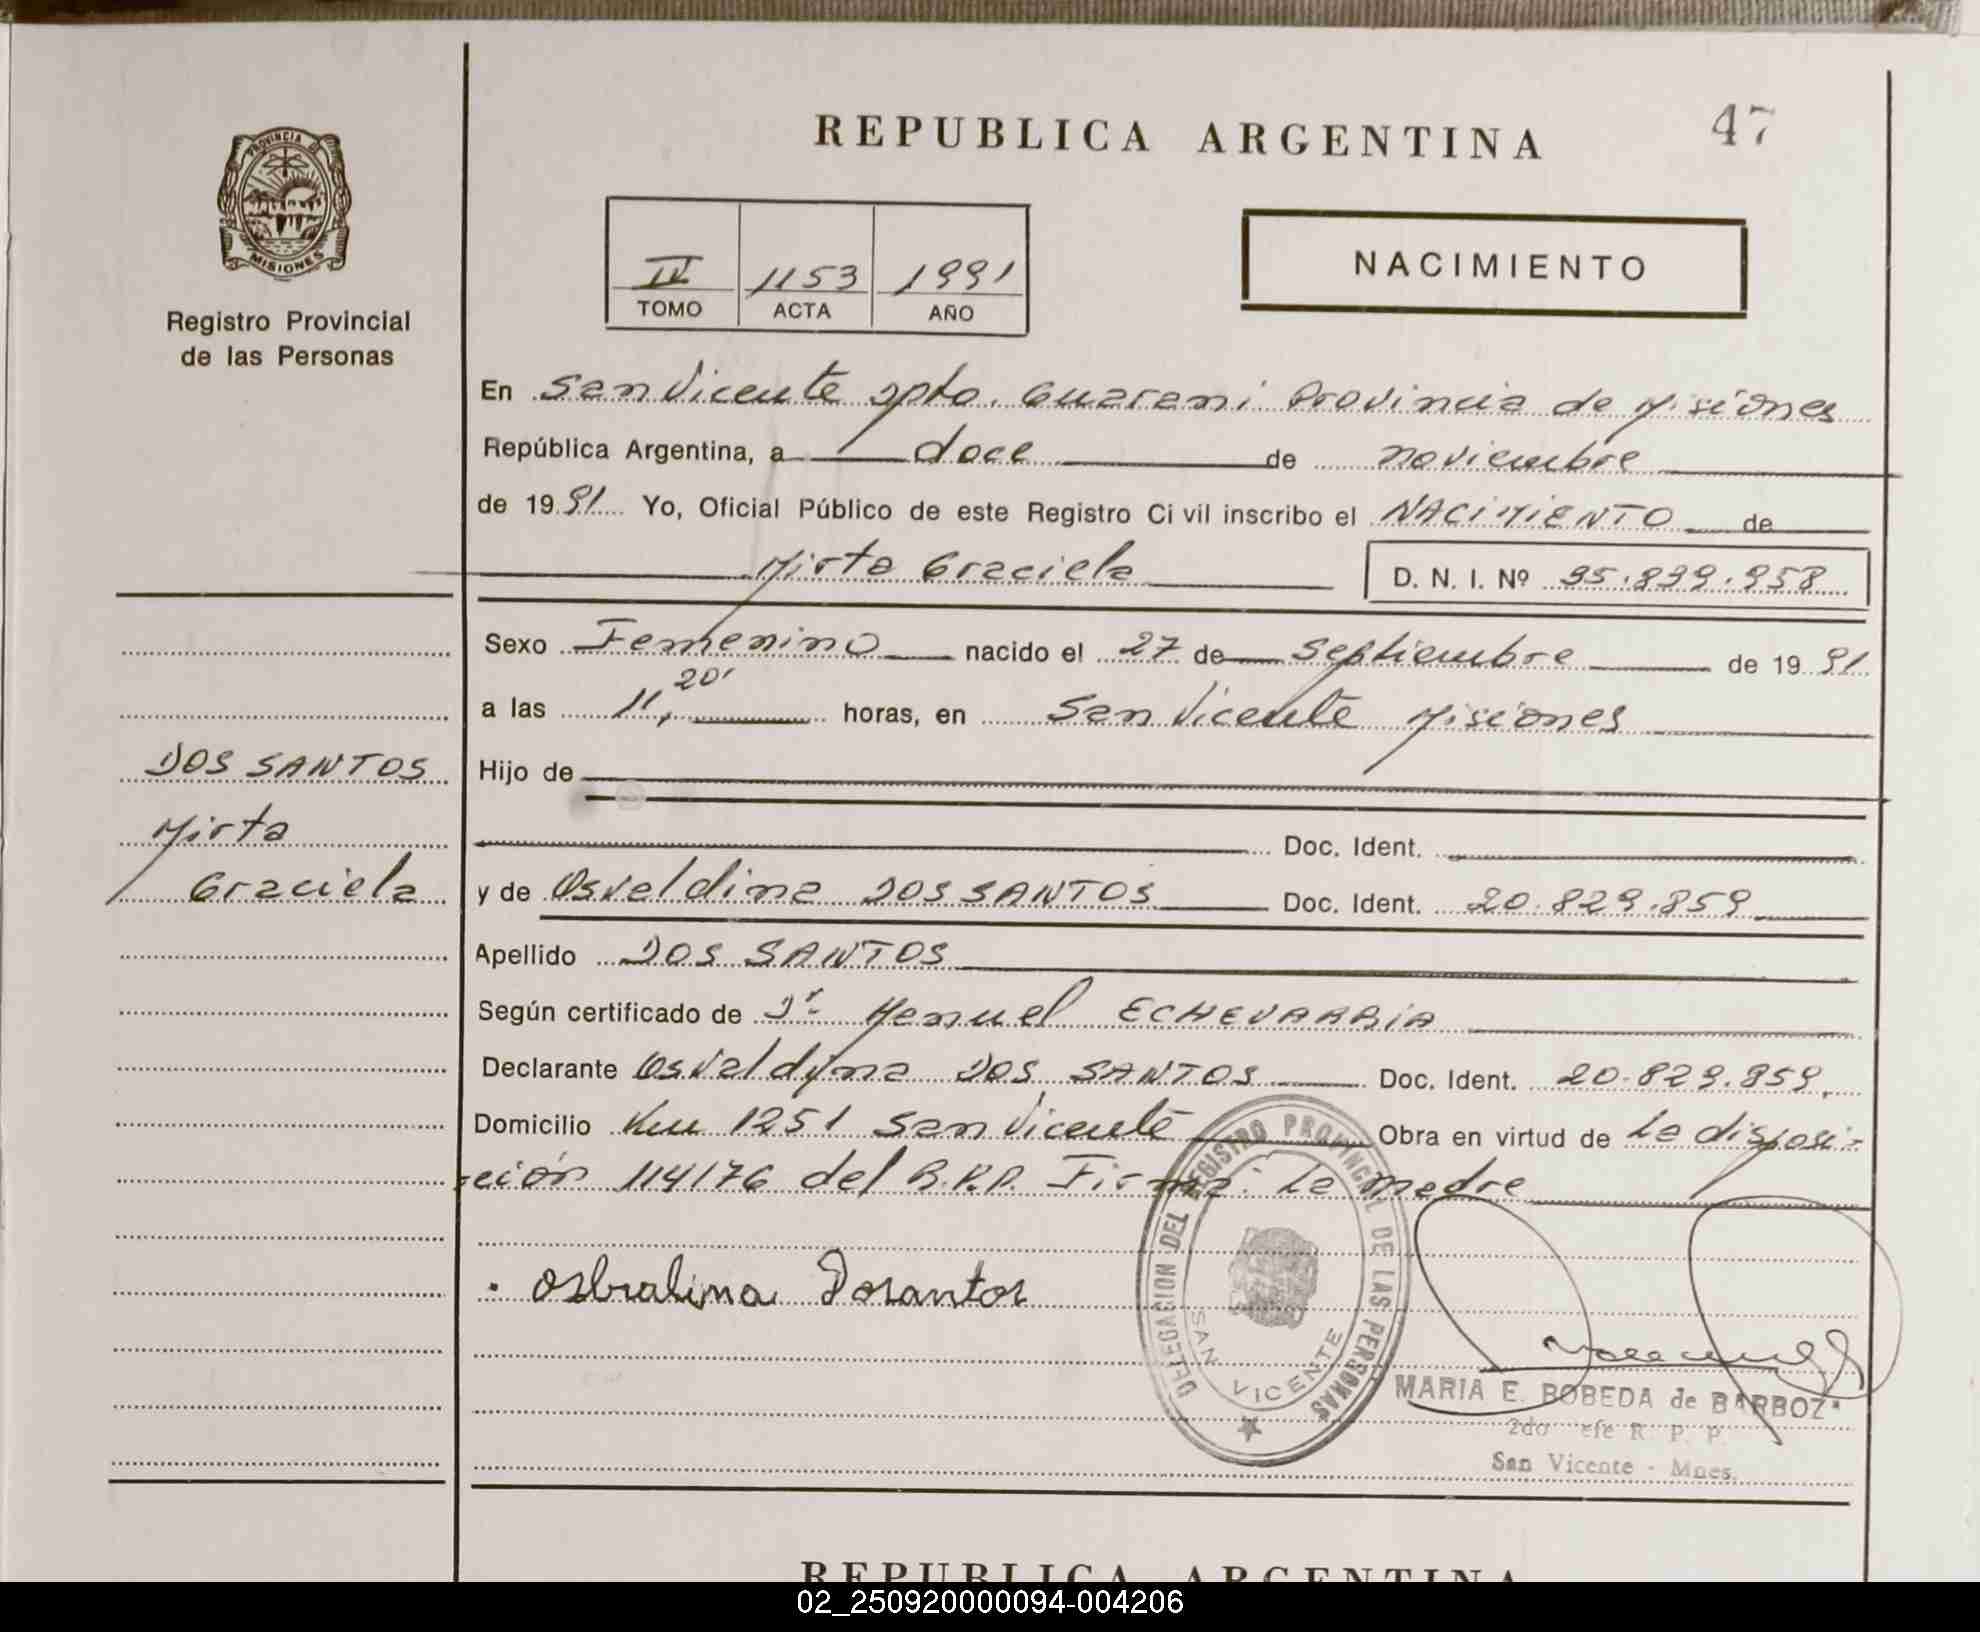 REPUBLICA ARGENTINA
47
PROVINCIA DE
MISIONES
Registro Provincial
de las Personas
IV 1153 1991
TOMO ACTA AÑO
NACIMIENTO
En San Vicente Dpto. Guarani Provincia de Misiones
República Argentina, a doce de noviembre
de 1991 Yo, Oficial Público de este Registro Civil inscribo el NACIMIENTO de
Mirta Graciela D. N. I. Nº 35.899.958
Sexo Femenino nacido el 27 de Septiembre de 1991
a las 11,20' horas, en San Vicente Misiones
DOS SANTOS
Mirta
Graciela
Hijo de
Doc. Ident.
y de Osvaldina DOS SANTOS Doc. Ident. 20.829.859
Apellido DOS SANTOS
Según certificado de Dr. Manuel ECHEVARRIA
Declarante Osvaldina DOS SANTOS Doc. Ident. 20.829.859.
Domicilio Km 1251 San Vicente Obra en virtud de La disposi=
=ción 114/76 del R.P.P. Firma: La madre
Osbralina Dosantos
DELEGACION DEL REGISTRO PROVINCIAL DE LAS PERSONAS
SAN VICENTE
MARIA E. BOBEDA de BARBOZ
2do efe R. P. P.
San Vicente - Mnes.
REPUBLICA ARGENTINA
02_250920000094-004206